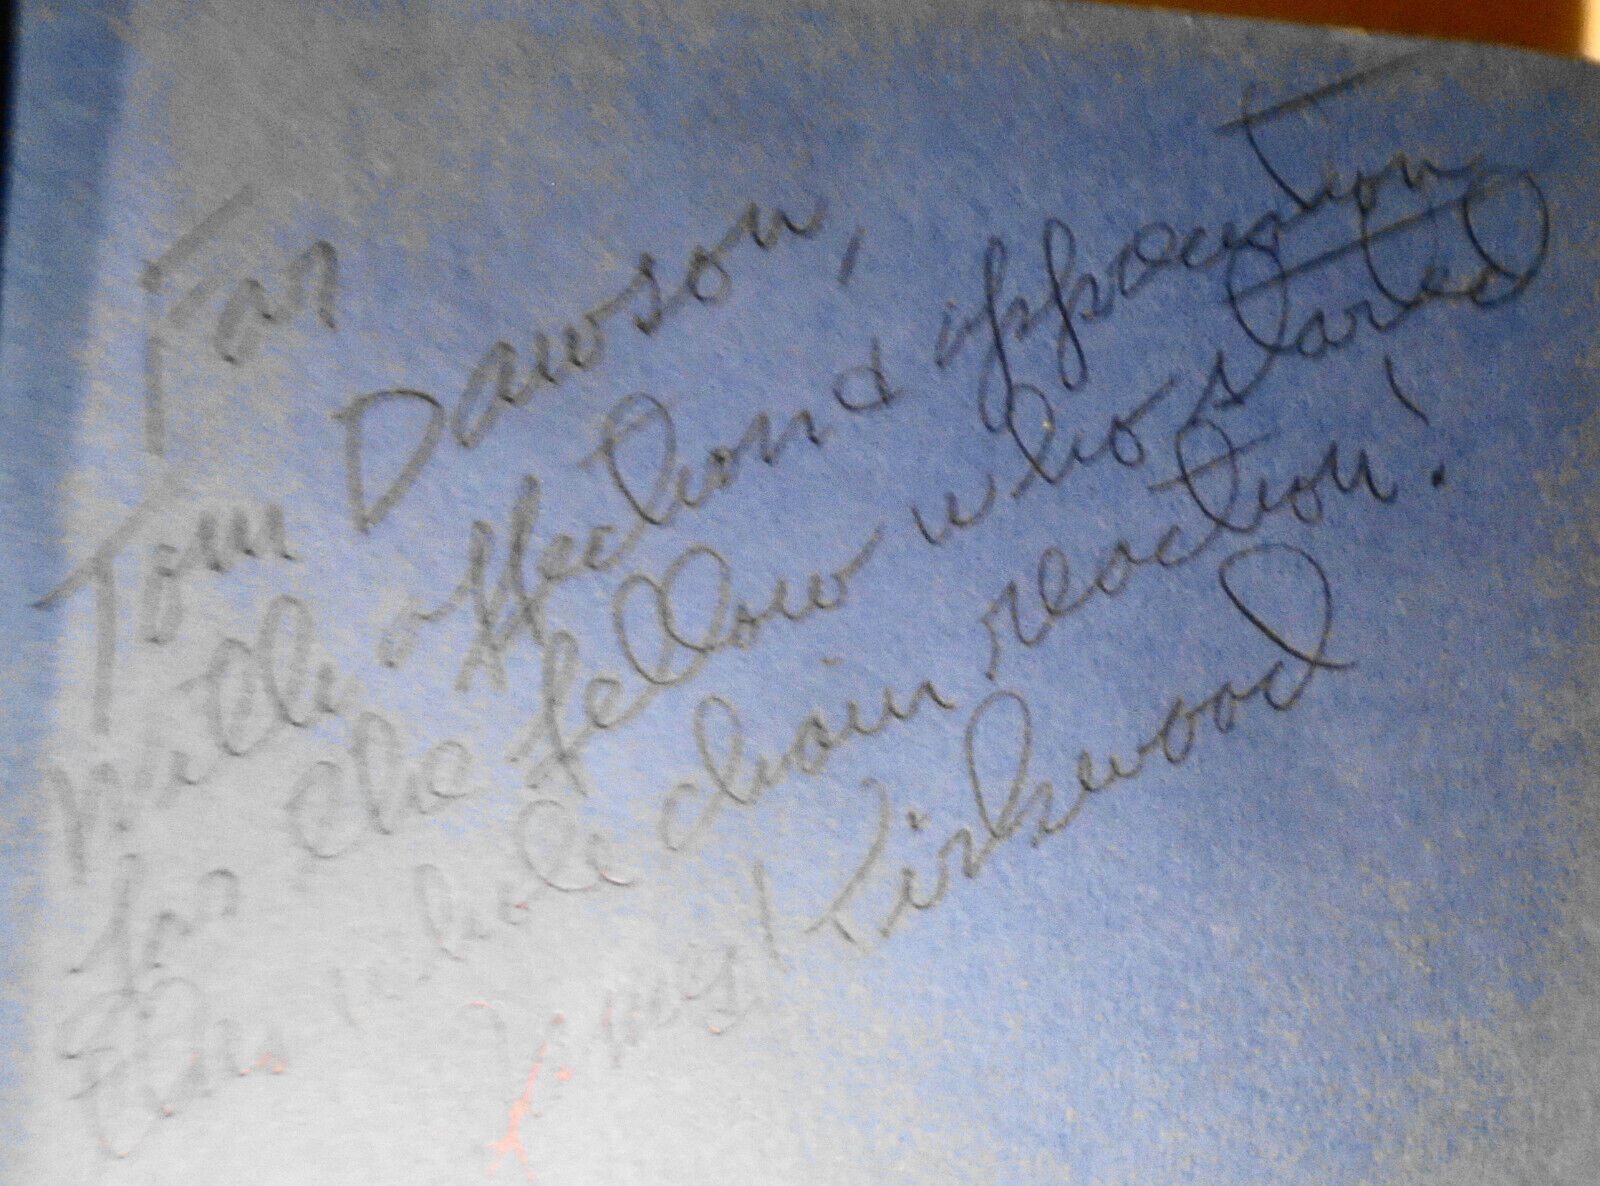 For
Tom Dawson,
With affection & appreciation
for the fellow who started
this whole chain reaction!
James Kirkwood